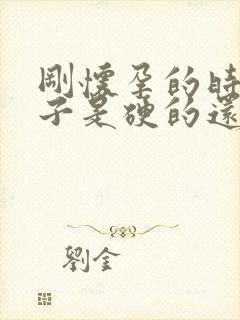 剛懷孕的時
子是硬的還
劉金